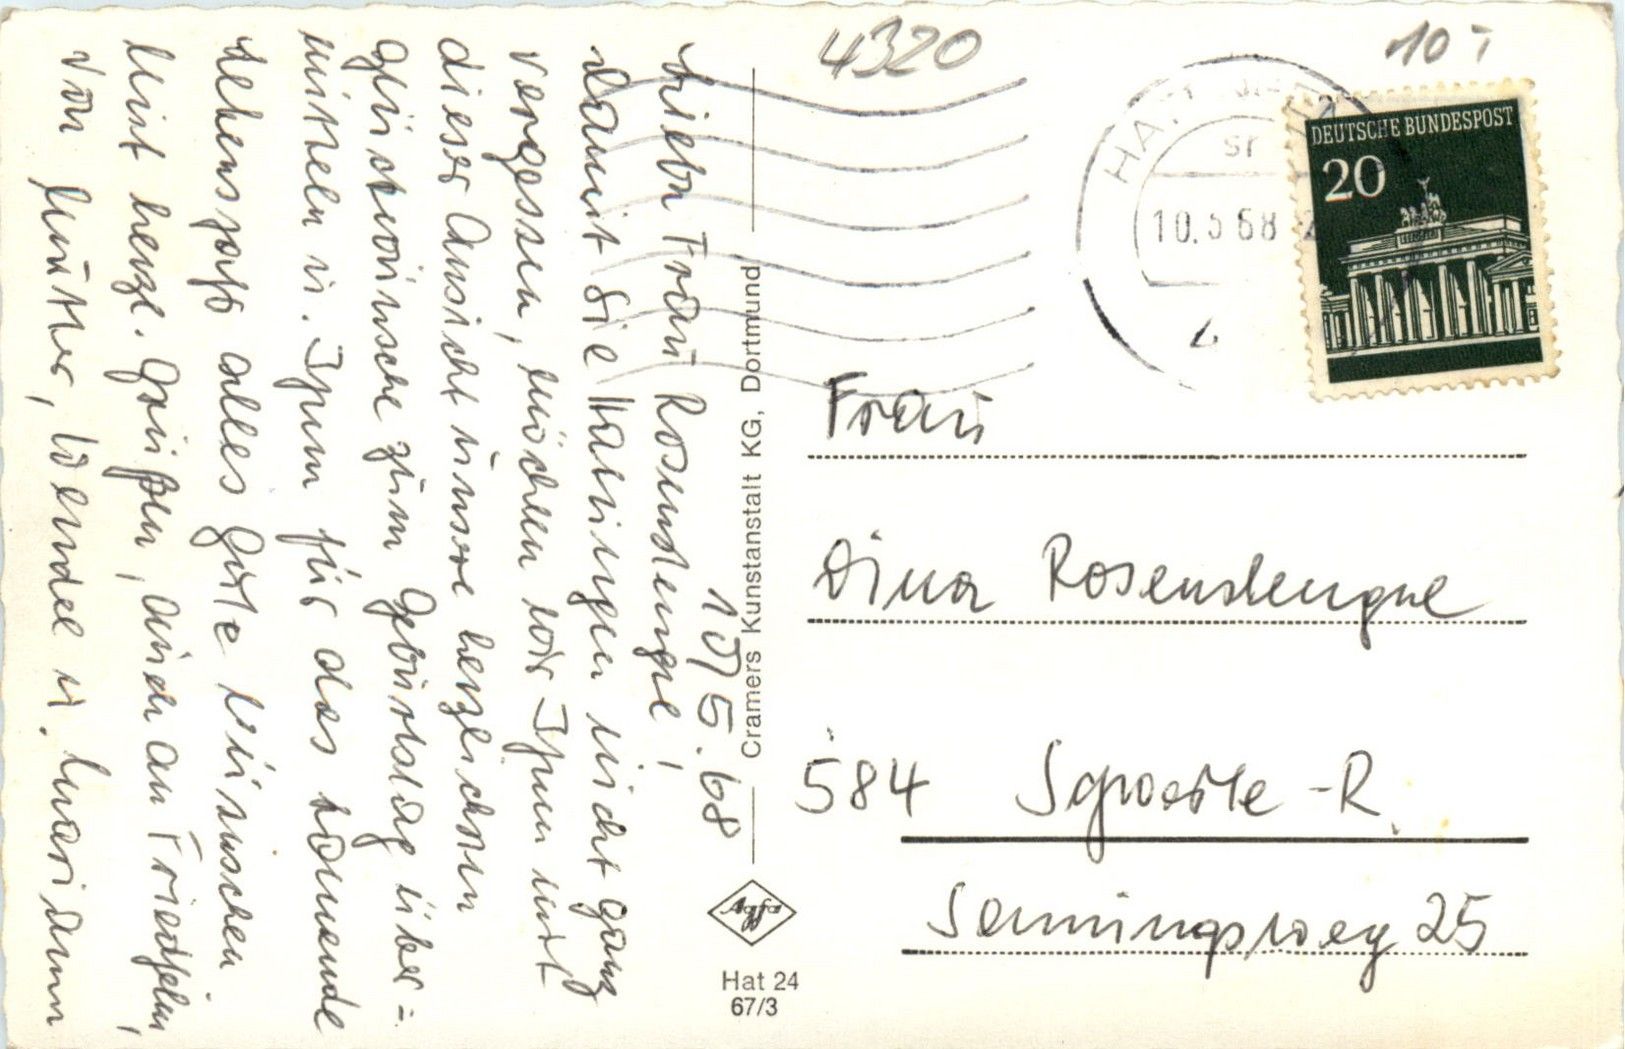 10.5.68
Liebe Frau Rosenstengel,
damit Sie Hattingen nicht ganz
vergessen, möchten wir Ihnen mit
dieser Ansicht unsere herzlichen
Glückwünsche zum Geburtstag über=
mitteln u. Ihnen für das kommende
Lebensjahr alles Gute wünschen
Mit herzl. Grüßen, auch an Friedhelm,
von Mutter, u. Mariann
Cramers Kunstanstalt KG, Dortmund
Agfa
Hat 24
67/3
4320
10,-
10.5.68
DEUTSCHE BUNDESPOST
20
Frau
Dina Rosenstengel
584 Schwerte-R.
Senningsweg 25